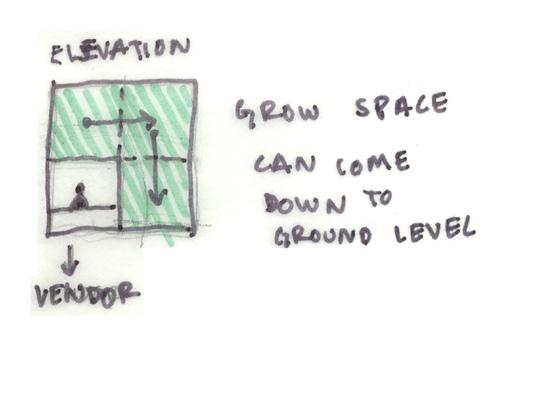 ELEVATION
GROW SPACE
CAN COME
DOWN TO
GROUND LEVEL
VENDOR